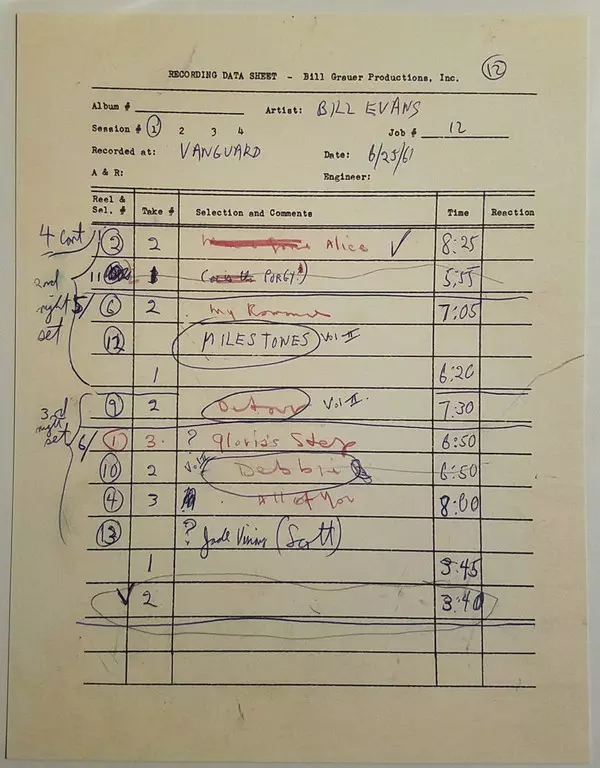 RECORDING DATA SHEET - Bill Grauer Productions, Inc. 12
Album #
Artist: BILL EVANS
Session # 1 2 3 4
Job # 12
Recorded at: VANGUARD
Date: 6/25/61
A & R:
Engineer:
Reel & Sel. # Take # Selection and Comments Time Reaction
4 cont 2 2 Alice ✓ 8:25
11 1 PORGY 5:55
2nd night set
5/ 6 2 My Romance 7:05
12 MILESTONES Vol II
1 6:20
9 2 Detour Vol II 7:30
3rd night set
6/ 1 3. ? Gloria's Step 6:50
10 2 Debbie 6:50
4 3 All of You 8:00
13 ? Jade Visions (Scott)
1 3:45
✓ 2 3:40